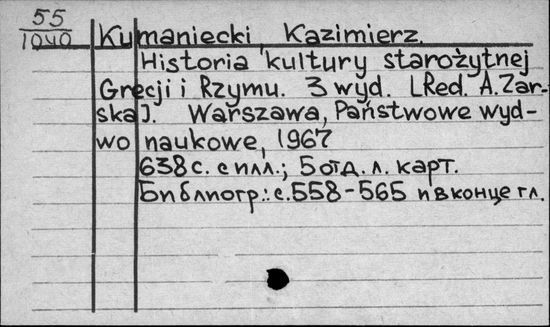 55
1040
Kumaniecki, Kazimierz.
Historia kultury starożytnej
Grecji i Rzymu. 3 wyd. [Red. A. Zar-
ska]. Warszawa, Państwowe wyd-
wo naukowe, 1967
638 с. с илл.; 5 отд. л. карт.
Библиогр.: с. 558-565 и в конце гл.